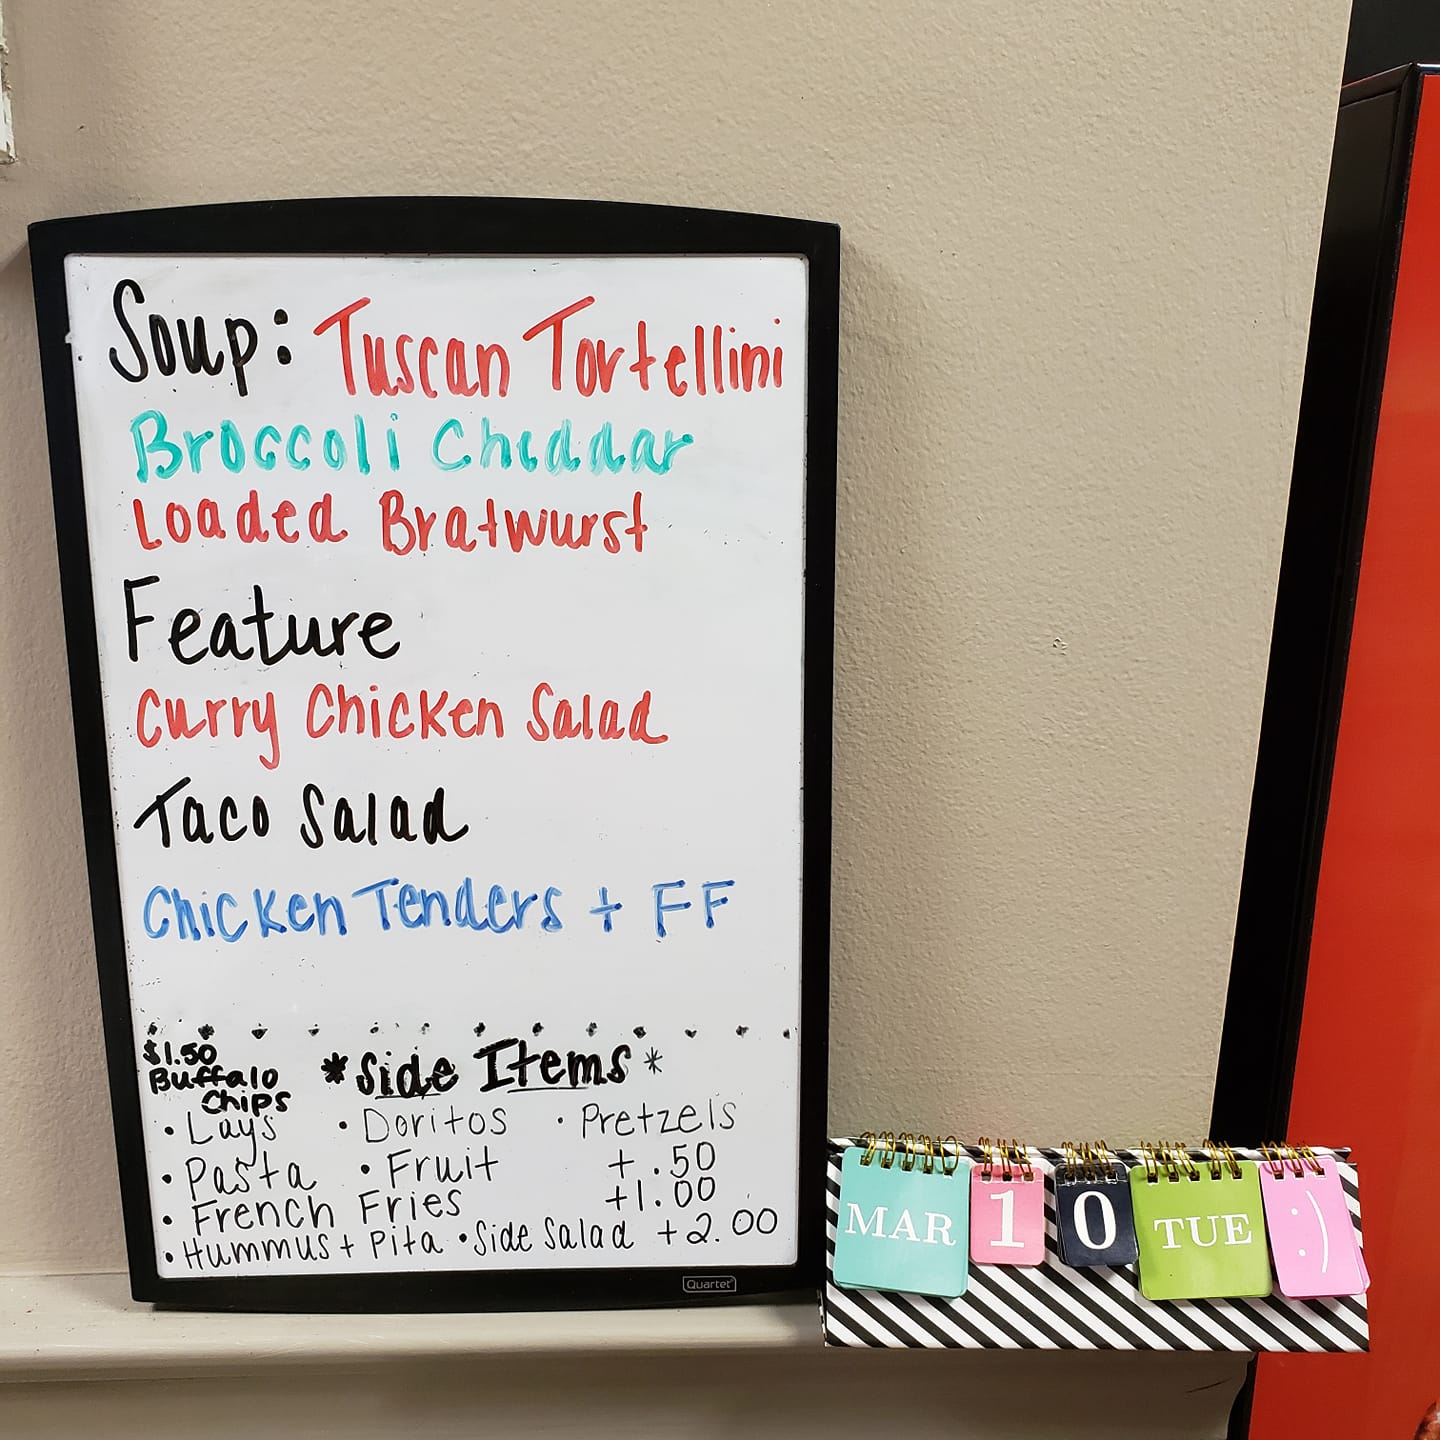 Soup: Tuscan Tortellini
Broccoli Cheddar
Loaded Bratwurst
Feature
Curry Chicken Salad
Taco Salad
Chicken Tenders + FF
$1.50
Buffalo
Chips
*Side Items*
• Lays • Doritos • Pretzels
• Pasta • Fruit +.50
• French Fries +1.00
• Hummus + Pita • Side Salad +2.00
Quartet
MAR 1 0 TUE :)